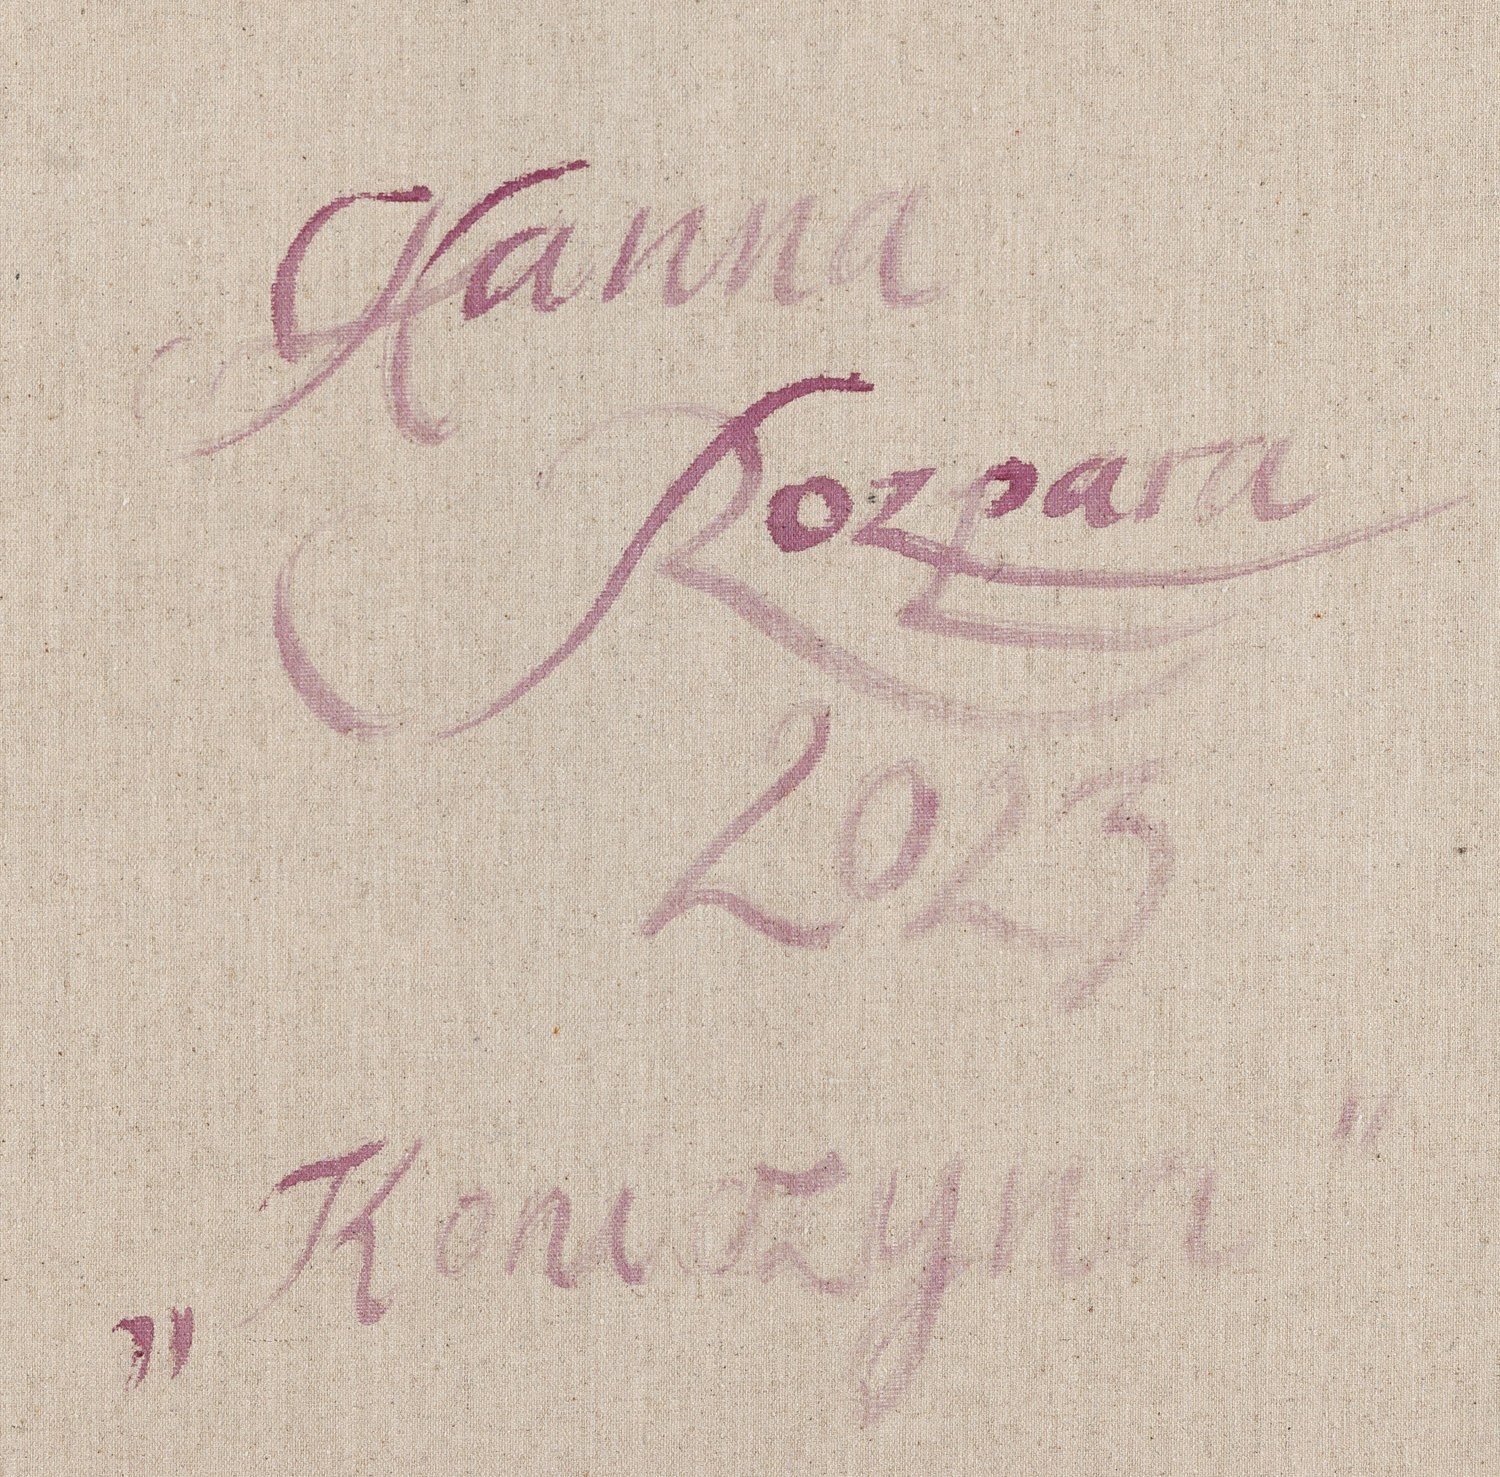 Hanna
Rozpara
2023
„Koniczyna"